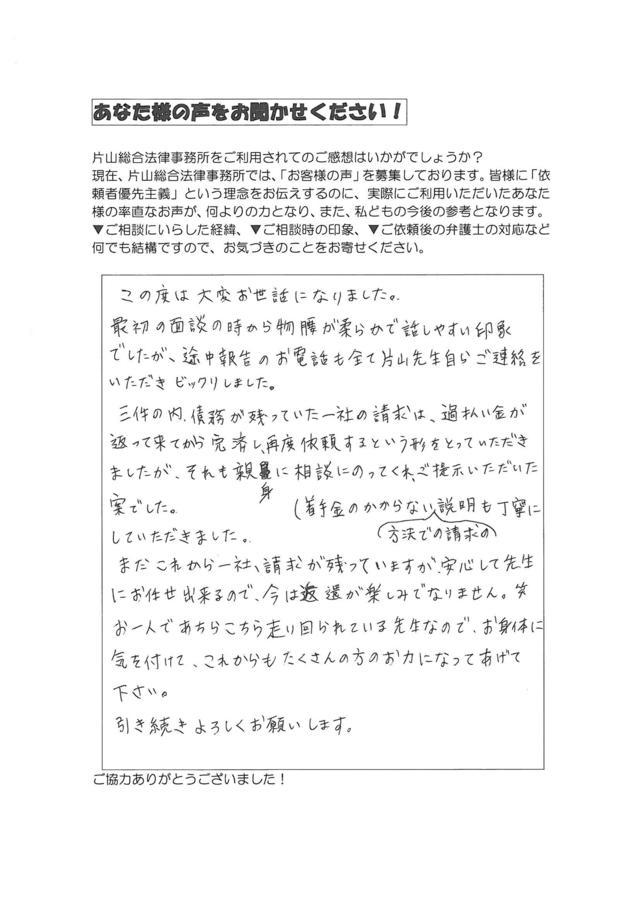 あなた様の声をお聞かせください！
片山総合法律事務所をご利用されてのご感想はいかがでしょうか？
現在、片山総合法律事務所では、「お客様の声」を募集しております。皆様に「依
頼者優先主義」という理念をお伝えするのに、実際にご利用いただいたあなた
様の率直なお声が、何よりの力となり、また、私どもの今後の参考となります。
▼ご相談にいらした経緯、▼ご相談時の印象、▼ご依頼後の弁護士の対応など
何でも結構ですので、お気づきのことをお寄せください。
この度は大変お世話になりました。
最初の面談の時から物腰が柔らかで話しやすい印象
でしたが、途中報告のお電話も全て片山先生自らご連絡を
いただきビックリしました。
三件の内、債務が残っていた一社の請求は、過払い金が
返って来てから完済し、再度依頼するという形をとっていただき
ましたが、それも親身に相談にのってくれ、ご提示いただいた
案でした。（着手金のかからない方法での請求の説明も丁寧に
していただきました。
まだこれから一社、請求が残っていますが、安心して先生
にお任せ出来るので、今は返還が楽しみでなりません。笑
お一人であちらこちら走り回られている先生なので、お身体に
気を付けて、これからもたくさんの方のお力になってあげて
下さい。
引き続きよろしくお願いします。
ご協力ありがとうございました！